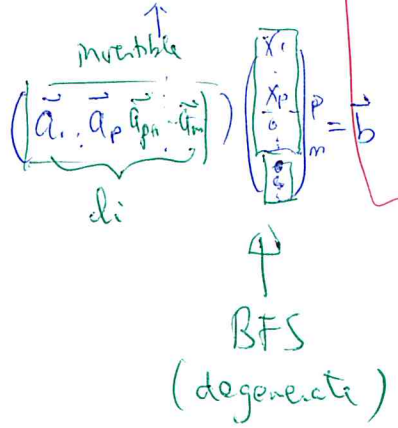 invertible
( a⃗₁ .. a⃗ₚ a⃗ₚ₊₁ .. a⃗ₘ ) ( x₁ . xₚ 0 : 0 : ) p m = b⃗
di
BFS
(degenerate)